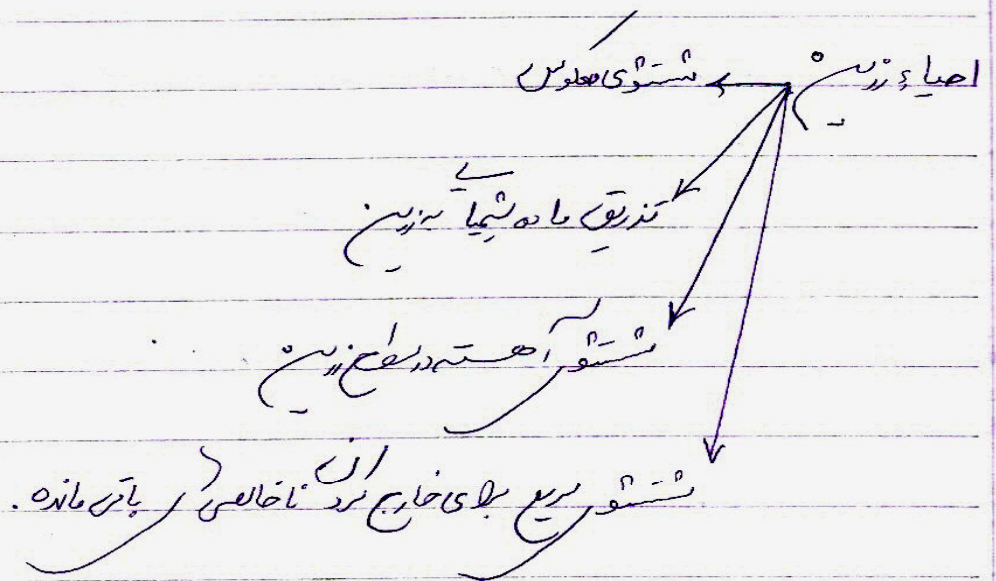 احیاء رزین شستشوی معکوس
تزریق ماده شیمیایی به رزین
شستشوی آهسته در سطح رزین
شستشوی سریع برای خارج کردن ناخالصی های باقی مانده.